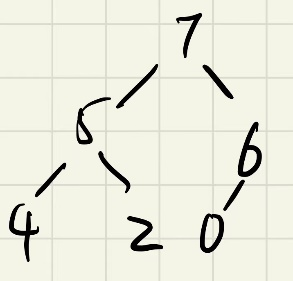 7
5 6
4 2 0